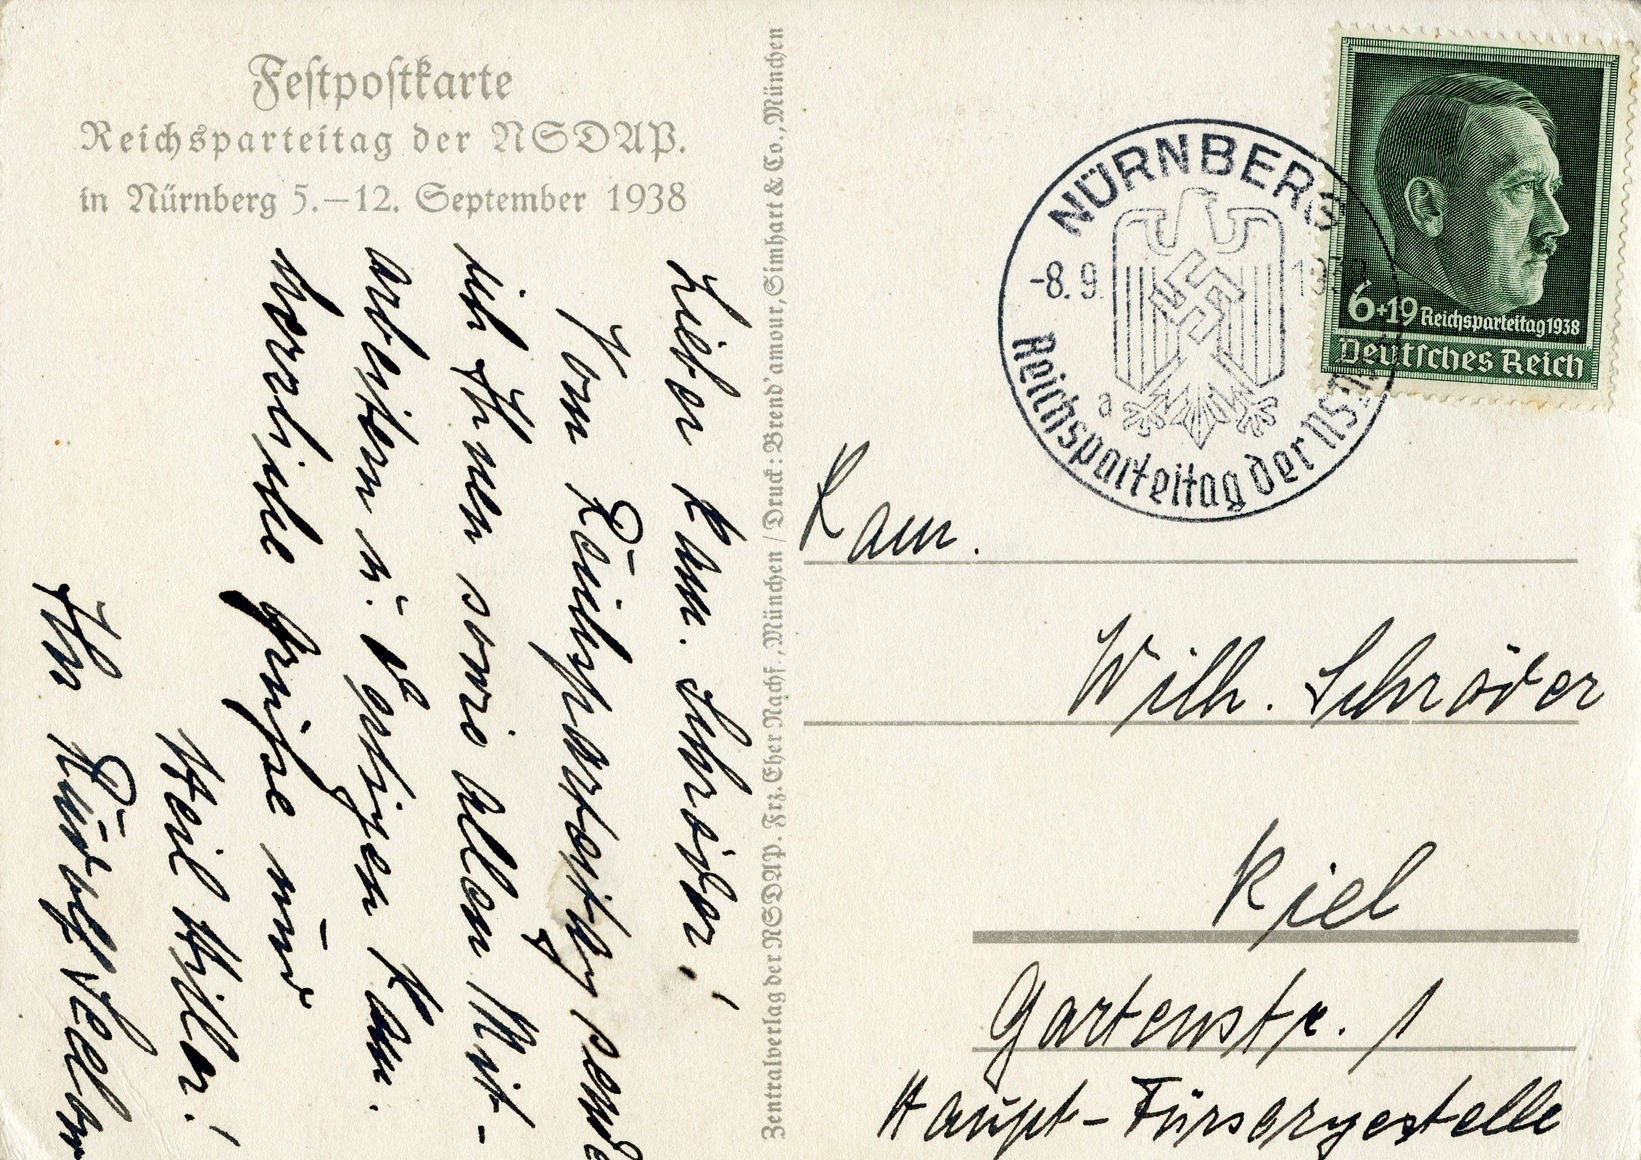 Festpostkarte
Reichsparteitag der NSDAP.
in Nürnberg 5.–12. September 1938
Lieber Kam. Schröder!
Vom Reichsparteitag sende
ich Ihnen sowie allen Mit-
arbeitern u. dortigen Kam.
herzliche Grüße und
Heil Hitler!
Ihr Rudolf
Zentralverlag der NSDAP. Frz. Eher Nachf., München / Druck: Brend'amour, Simhart & Co., München
NÜRNBERG
-8.9. 1938
a
Reichsparteitag der NSDAP
6+19 Reichsparteitag 1938
Deutsches Reich
Kam.
Wilh. Schröder
Kiel
Gartenstr. 1
Haupt-Fürsorgestelle